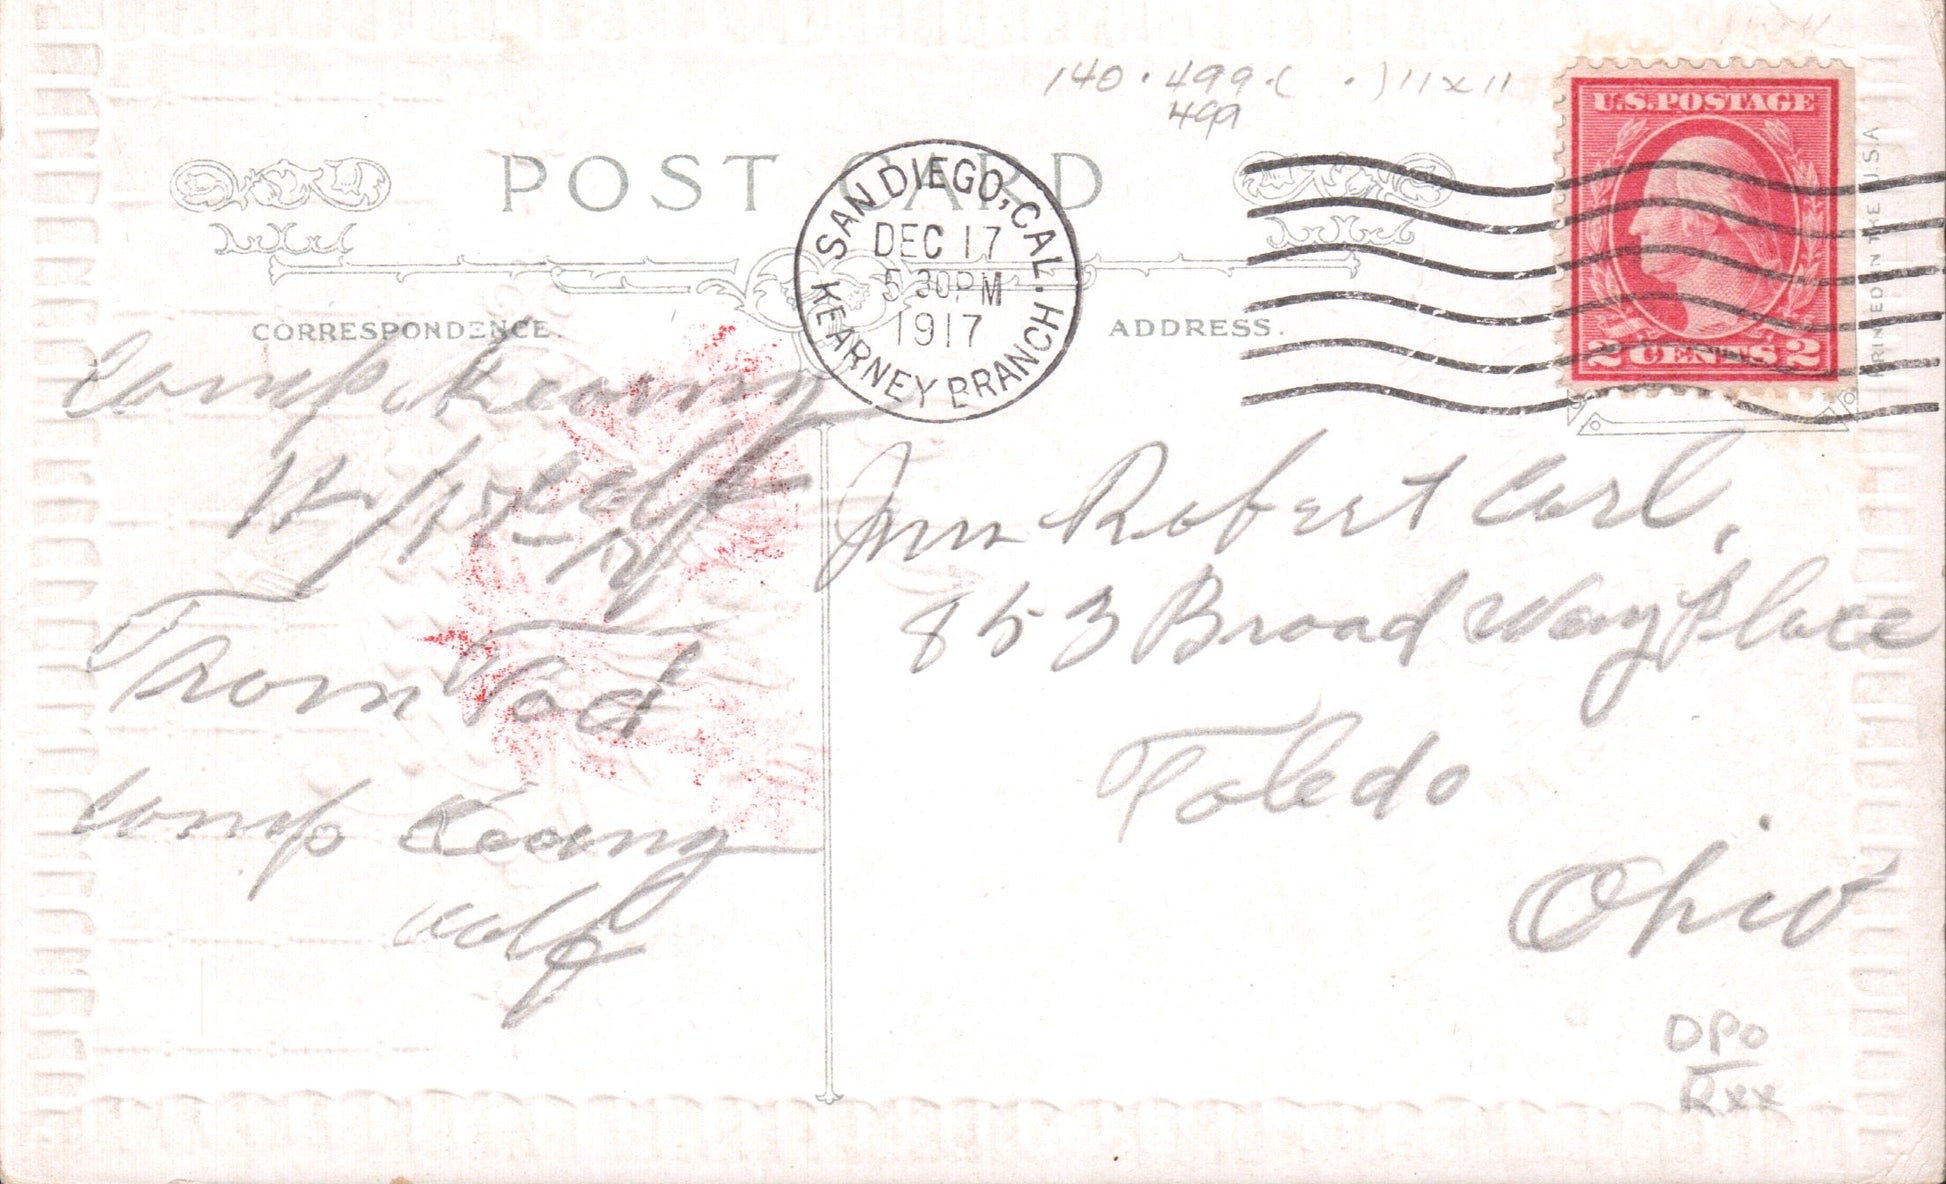 140 · 499 · ( · ) 11 x 11
499
U.S. POSTAGE
2 CENTS 2
POST CARD
SAN DIEGO, CAL.
DEC 17
5 30PM
1917
KEARNEY BRANCH
PRINTED IN THE U.S.A
CORRESPONDENCE.
ADDRESS.
Camp Kearny
Calif
12/17-17
From Tod
Camp Kearny
Calf
Robert Carl,
853 Broad Way Place
Toledo
Ohio
DPO
Rxx